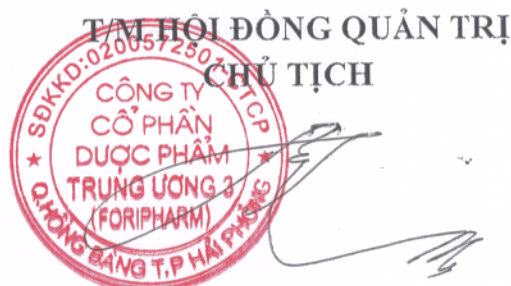 T/M HỘI ĐỒNG QUẢN TRỊ
CHỦ TỊCH
SĐKKD:0200572501
CTCP
CÔNG TY
CỔ PHẦN
DƯỢC PHẨM
TRUNG ƯƠNG 3
(FORIPHARM)
Q.HỒNG BÀNG T.P HẢI PHÒNG